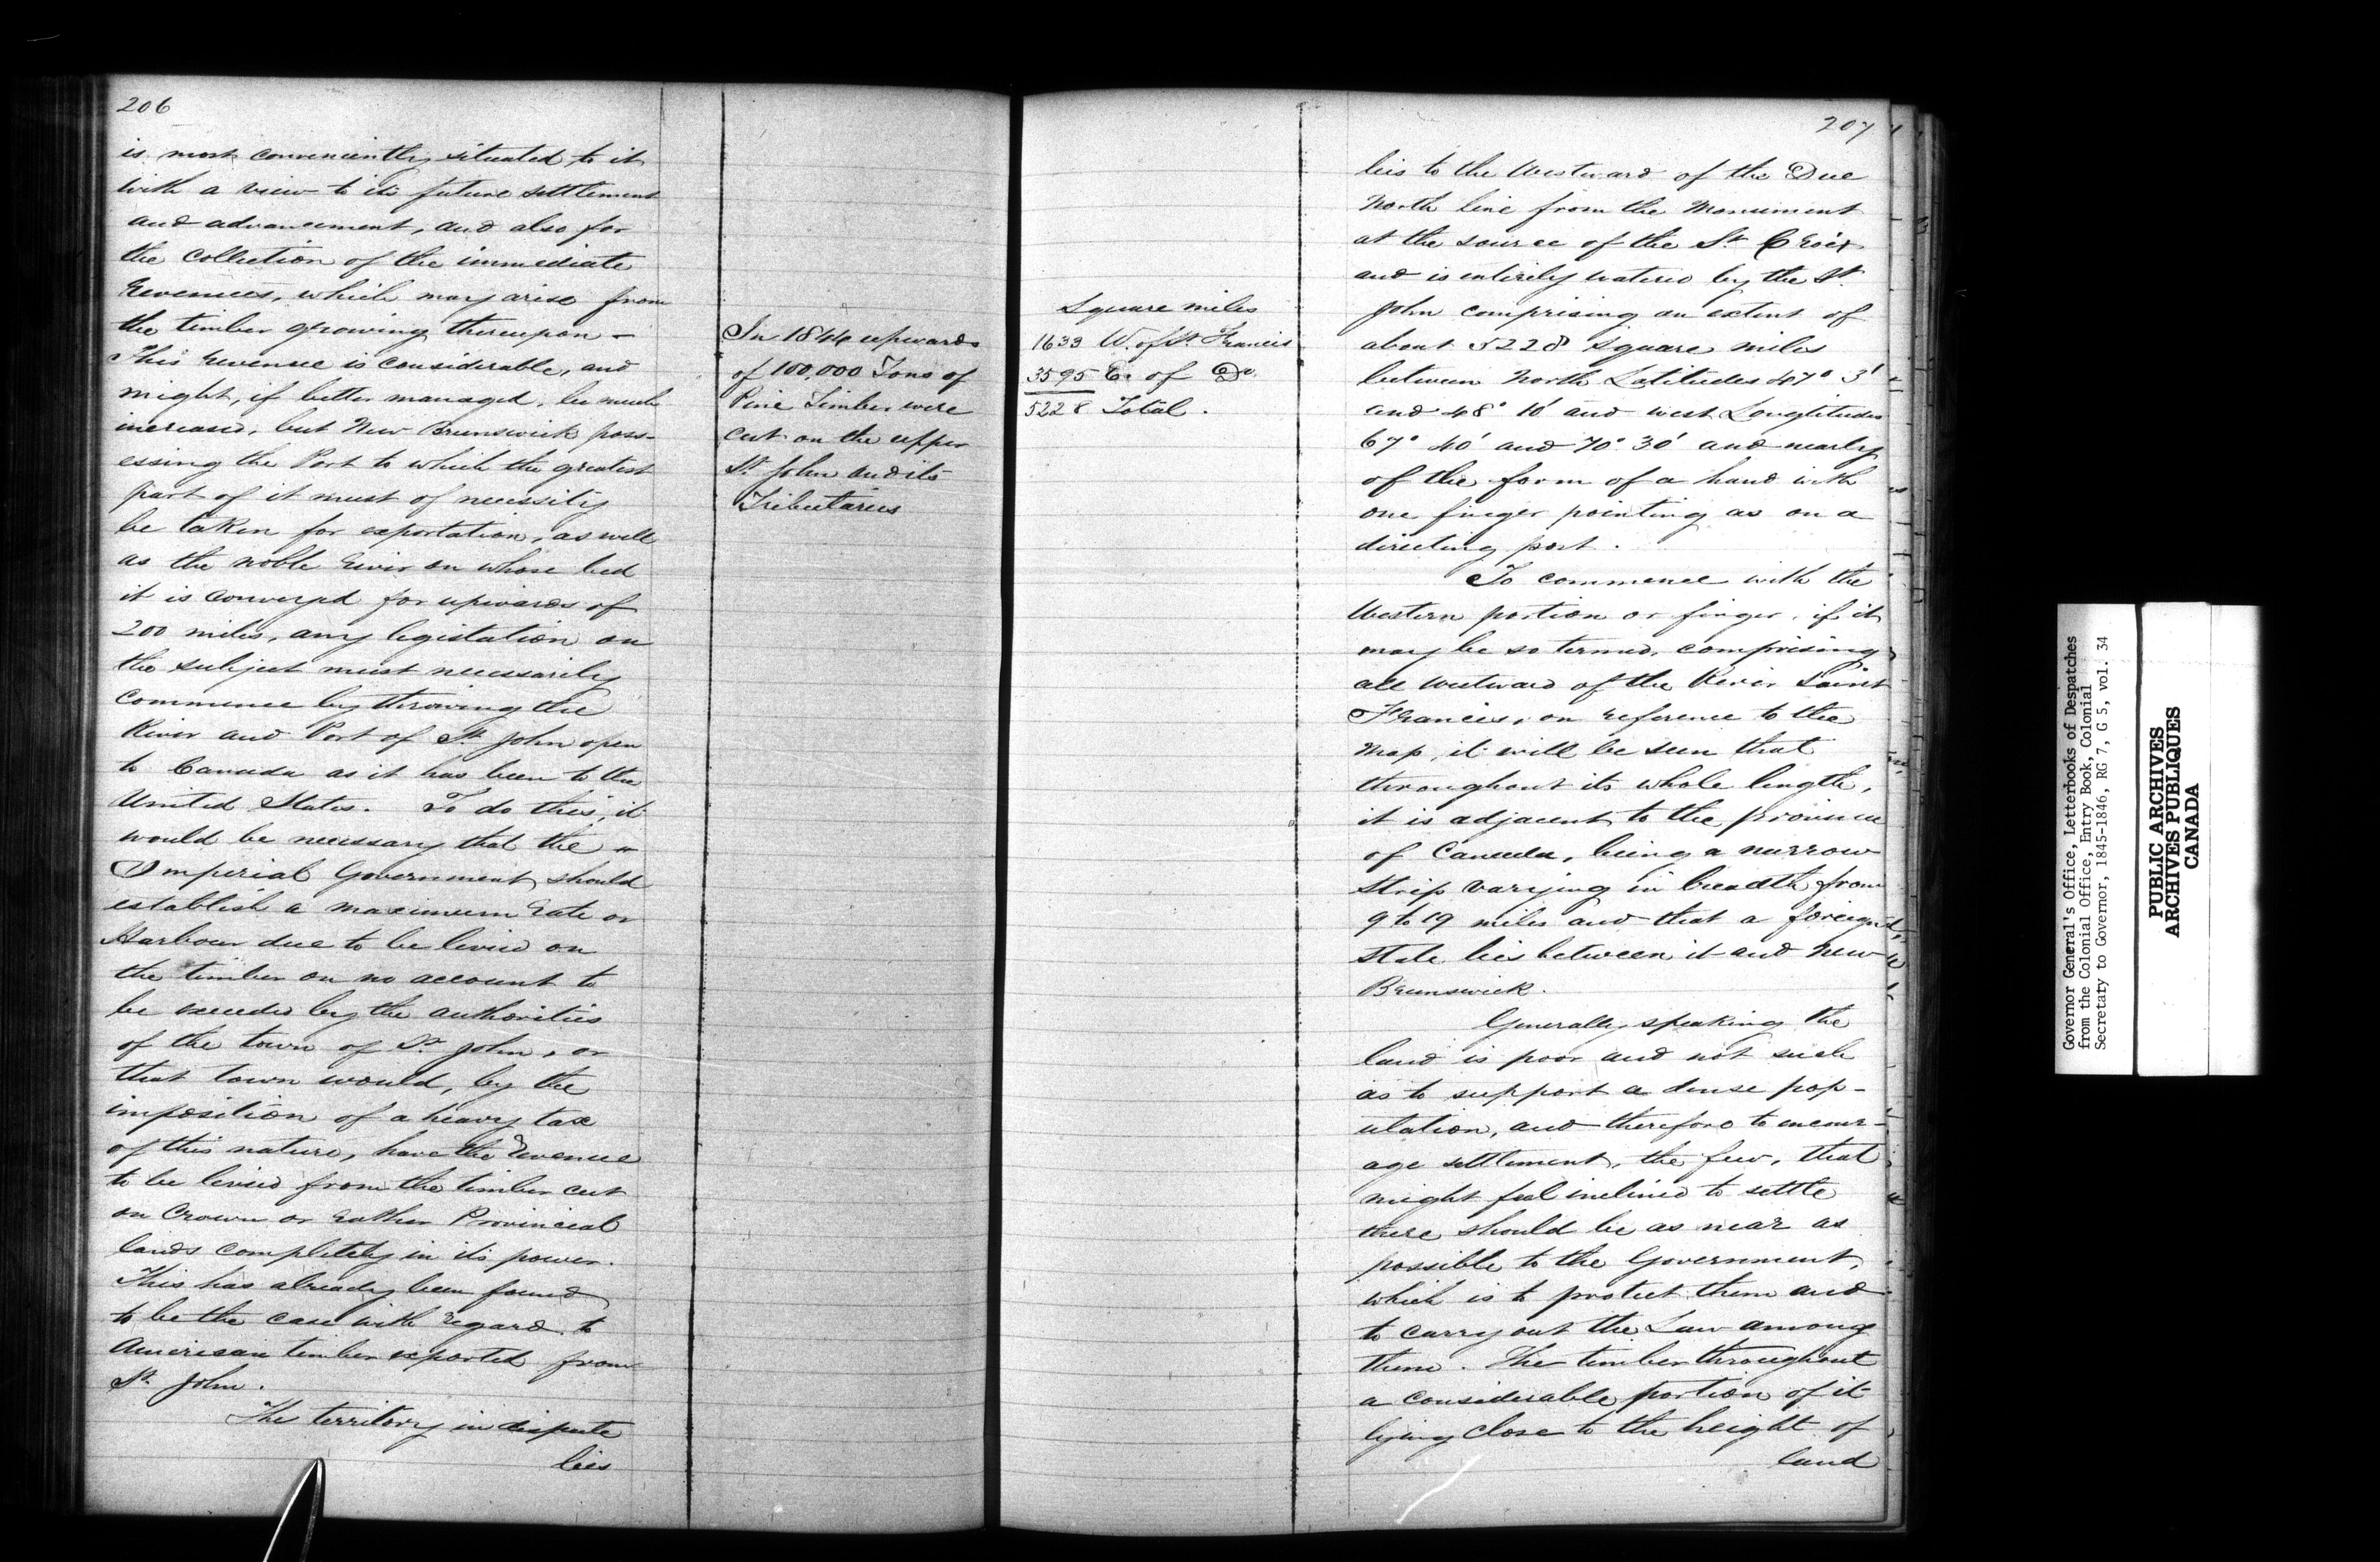 206
is most conveniently situated to it
with a view to its future settlement
and advancement, and also for
the collection of the immediate
Revenues, which may arise from
the timber growing thereupon –
This revenue is considerable, and
might, if better managed, be much
increased, but New Brunswick poss-
essing the Port to which the greatest
part of it must of necessity
be taken for exportation, as well
as the noble River on whose bed
it is conveyed for upwards of
200 miles, any legislation on
the subject must necessarily
commence by throwing the
River and Port of St. John open
to Canada as it has been to the
United States. To do this, it
would be necessary that the
Imperial Government should
establish a maximum rate or
Harbour due to be levied on
the timber on no account to
be exceeded by the authorities
of the town of St. John, or
that town would, by the
imposition of a heavy tax
of this nature, have the Revenue
to be levied from the timber cut
on Crown or rather Provincial
lands completely in its power.
This has already been found
to be the case with regard to
American timber exported from
St. John.
The territory in dispute
lies
In 1844 upwards
of 100,000 Tons of
Pine Timber were
cut on the upper
St. John and its
Tributaries
207
lies to the Westward of the Due
North line from the Monument
at the source of the St. Croix
and is entirely watered by the St.
John comprising an extent of
about 5228 square miles
between North Latitudes 47° 3'
and 48° 10' and west Longtitudes
67° 40' and 70° 30' and nearly
of the form of a hand with
one finger pointing as on a
directing post.
To commence with the
Western portion or finger, if it
may be so termed, comprising
all westward of the River Saint
Francis, on reference to the
Map, it will be seen that
throughout its whole length,
it is adjacent to the province
of Canada, being a narrow
strip varying in breadth from
9 to 19 miles and that a foreign
state lies between it and New
Brunswick.
Generally speaking the
land is poor and not such
as to support a dense pop-
ulation, and therefore to encour-
age settlement, the few, that
might feel inclined to settle
there should be as near as
possible to the Government,
which is to protect them and
to carry out the Law among
them. The timber throughout
a considerable portion of it
lying close to the height of
land
Square miles
1633 W. of St. Francis
3595 E. of Do.
5228 Total.
Governor General's Office, Letterbooks of Despatches
from the Colonial Office, Entry Book, Colonial
Secretaty to Governor, 1845-1846, RG 7, G 5, vol. 34
PUBLIC ARCHIVES
ARCHIVES PUBLIQUES
CANADA